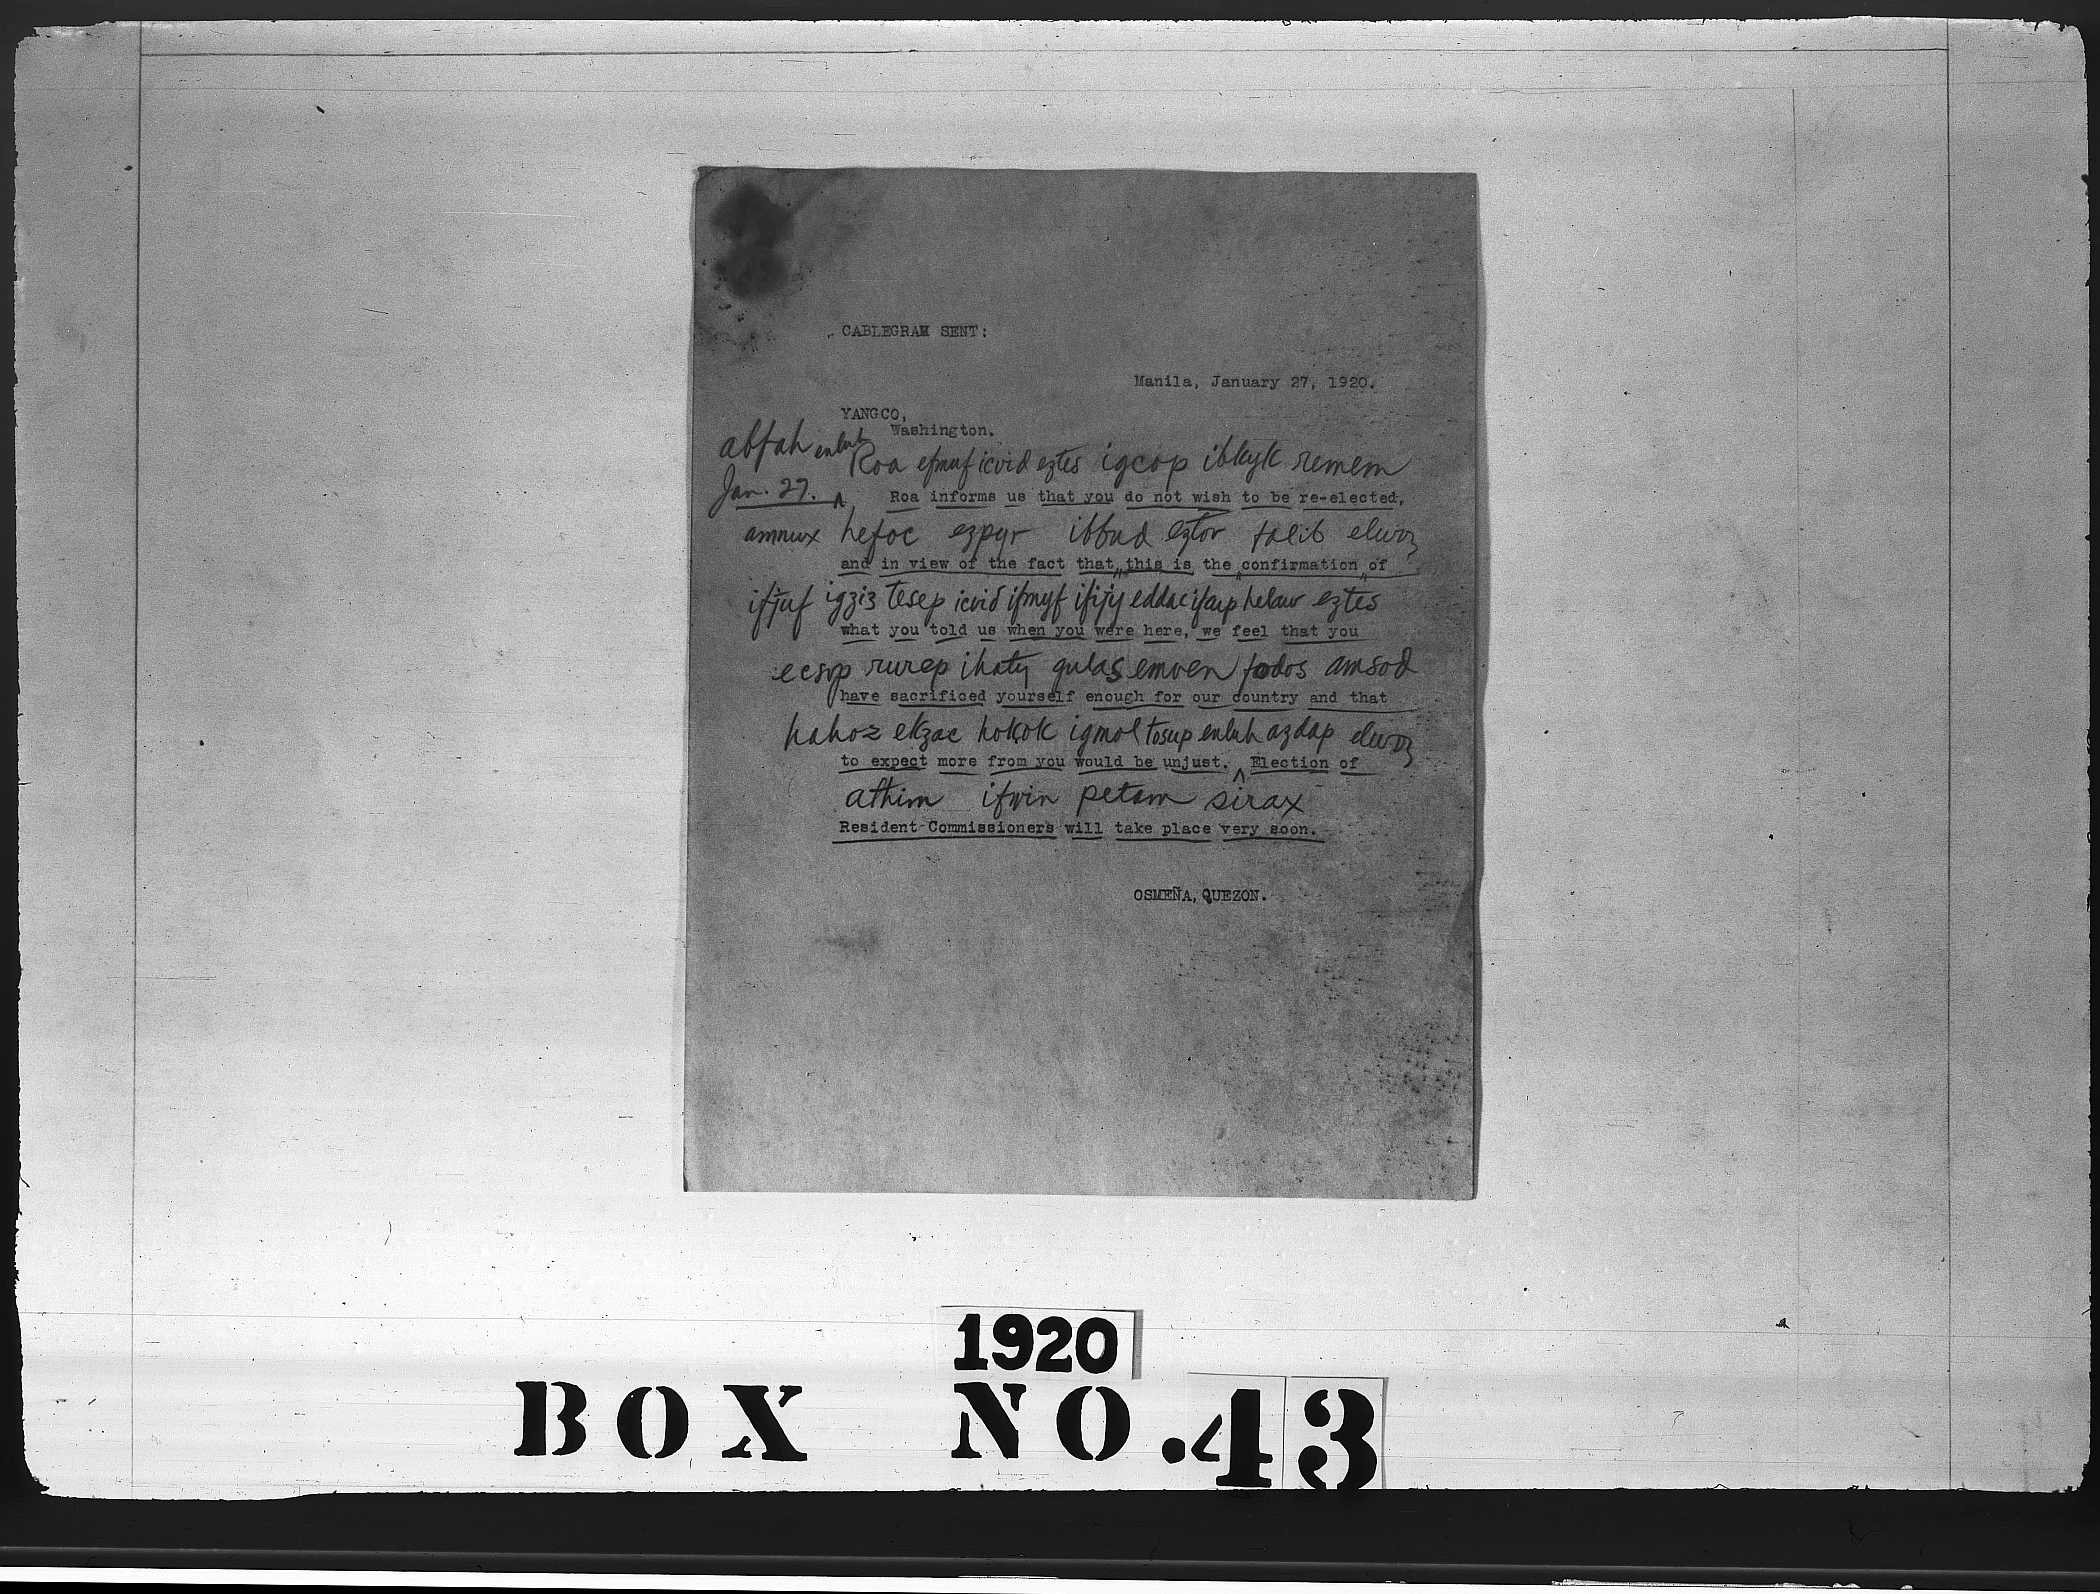 CABLEGRAM SENT:
Manila, January 27, 1920.
YANGCO,
Washington.
abfah enluh Roa efmuf icvid eztes igcop ibkyk remem
Jan. 27. ^ Roa informs us that you do not wish to be re-elected,
amnux hefoc ezpyr ibbud eztor falib
and in view of the fact that "this is the "confirmation" of
ifjuf igziz tesep icvid ifmyf ifijy eddac ifaup helaw eztes
what you told us when you were here, we feel that you
ecsop rurep ihaty gulas emven fodos amsod
have sacrificed yourself enough for our country and that
hahoz ekzac hokok igmol tosup enluh azdap
to expect more from you would be unjust. ^ Election of
athim ifwin petam sirax
Resident Commissioners will take place very soon.
OSMEÑA, QUEZON.
1920
BOX NO. 43